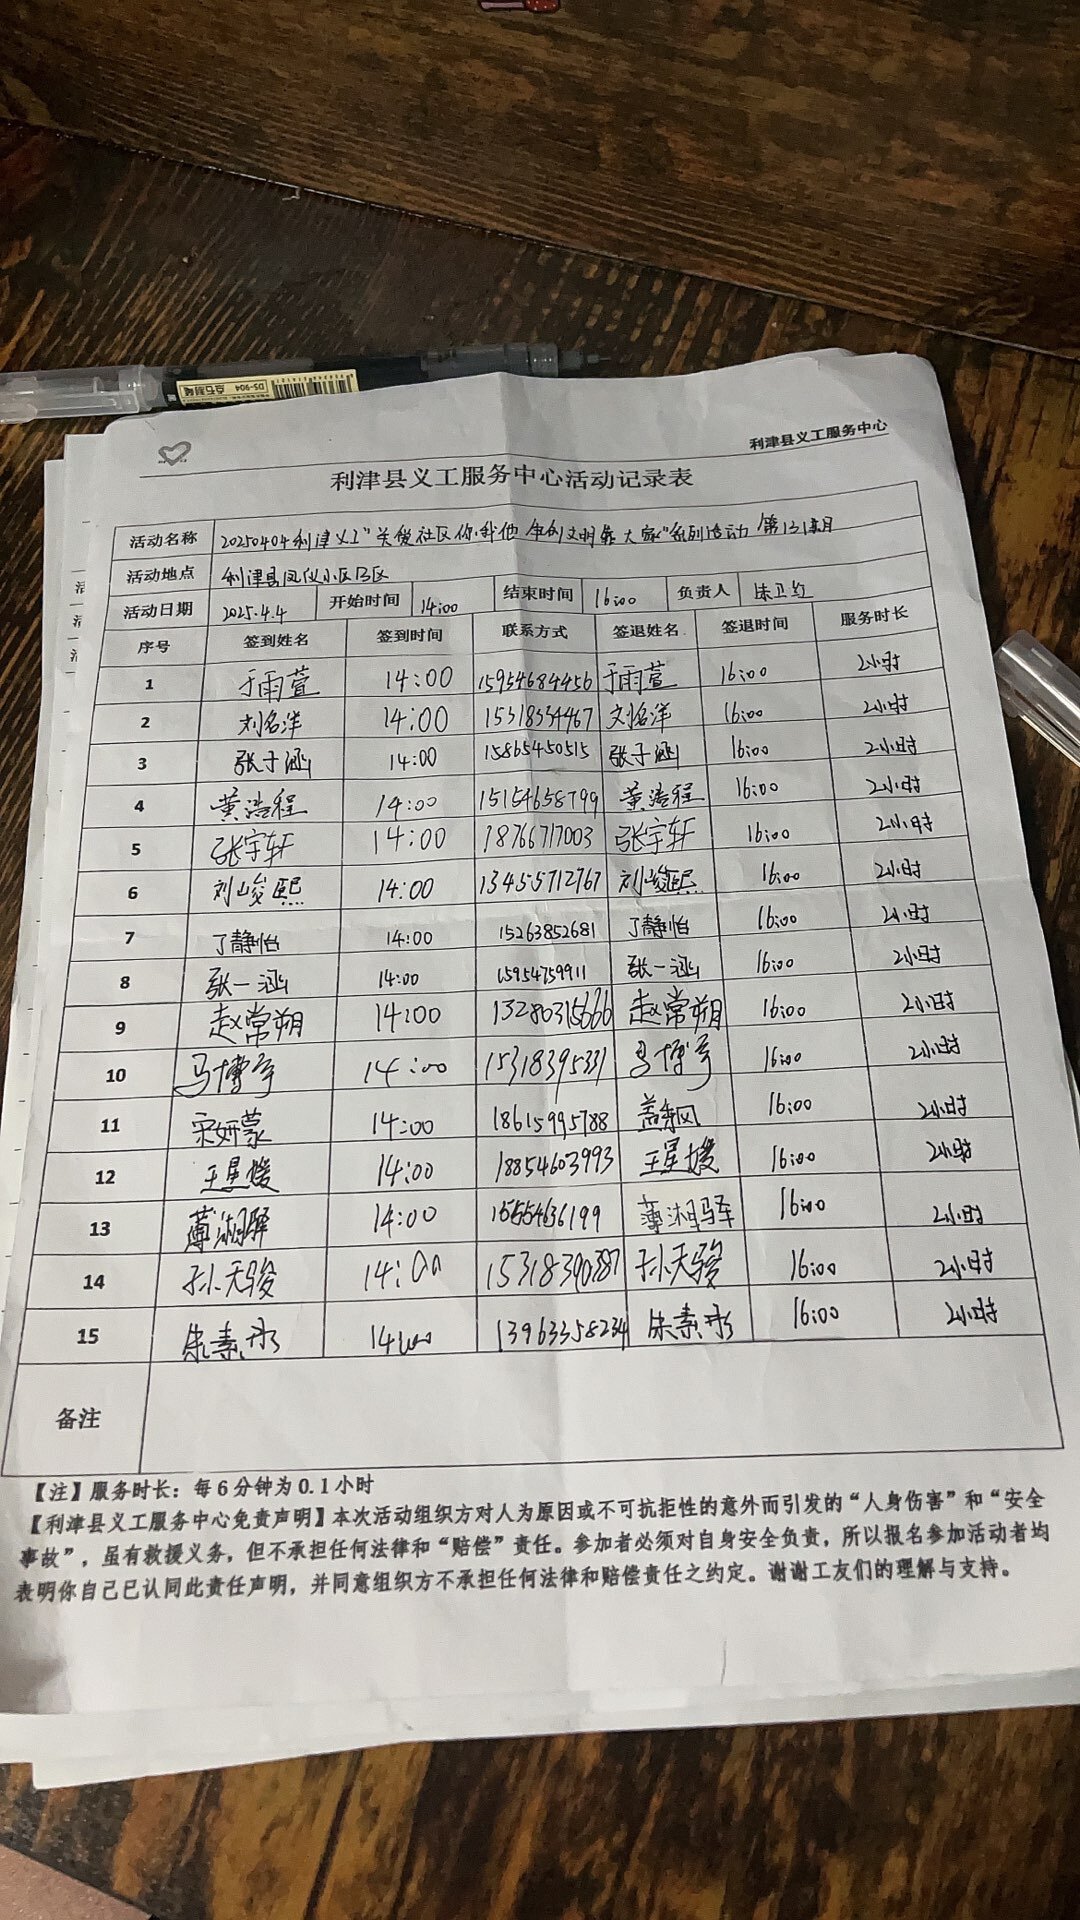 DS-904 点石制笔
利津县义工服务中心
利津县义工服务中心活动记录表
活动名称 20250404利津义工"关爱社区你我他 争创文明靠大家"系列活动 第131期
活动地点 利津县凤仪小区B区
活动日期 2025.4.4 开始时间 14:00 结束时间 16:00 负责人
序号 签到姓名 签到时间 联系方式 签退姓名 签退时间 服务时长
1 于雨萱 14:00 15954684456 于雨萱 16:00 2小时
2 刘名洋 14:00 15318554467 刘名洋 16:00 2小时
3 张子涵 14:00 15865450515 张子涵 16:00 2小时
4 黄浩程 14:00 15154658799 黄浩程 16:00 2小时
5 张宇轩 14:00 18766717003 张宇轩 16:00 2小时
6 刘峻熙 14:00 13455712767 刘峻熙 16:00 2小时
7 丁静怡 14:00 15263852681 丁静怡 16:00 2小时
8 张一涵 14:00 15954759911 张一涵 16:00 2小时
9 赵常朔 14:00 13280315666 赵常朔 16:00 2小时
10 马博宇 14:00 15318395331 马博宇 16:00 2小时
11 宋妍蒙 14:00 18615995788 16:00 2小时
12 王星媛 14:00 18854603993 王星媛 16:00 2小时
13 薄湘驿 14:00 15554636199 薄湘驿 16:00 2小时
14 孙天骏 14:00 15318390387 孙天骏 16:00 2小时
15 朱素彦 14:00 13963358234 朱素彦 16:00 2小时
备注
【注】服务时长：每6分钟为0.1小时
【利津县义工服务中心免责声明】本次活动组织方对人为原因或不可抗拒性的意外而引发的“人身伤害”和“安全
事故”，虽有救援义务，但不承担任何法律和“赔偿”责任。参加者必须对自身安全负责，所以报名参加活动者均
表明你自己已认同此责任声明，并同意组织方不承担任何法律和赔偿责任之约定。谢谢工友们的理解与支持。